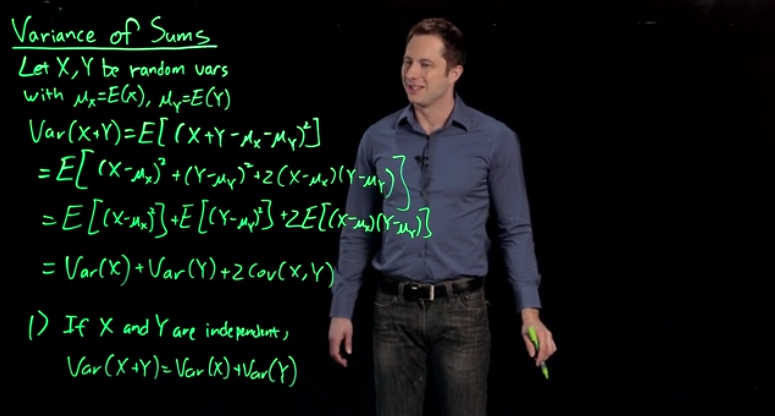 Variance of Sums
Let X,Y be random vars
with μx=E(X), μY=E(Y)
Var(X+Y)=E[(X+Y-μx-μY)²]
=E[(X-μx)²+(Y-μY)²+2(X-μx)(Y-μY)]
=E[(X-μx)²]+E[(Y-μY)²]+2E[(X-μx)(Y-μY)]
=Var(X)+Var(Y)+2Cov(X,Y)
1) If X and Y are independent,
Var(X+Y)=Var(X)+Var(Y)